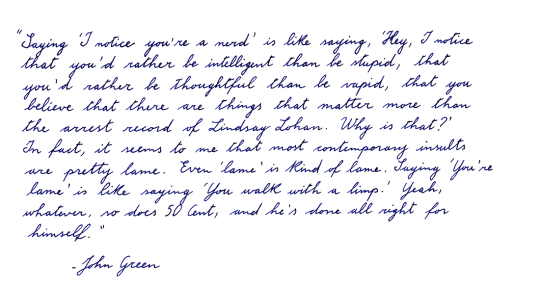 "Saying 'I notice you're a nerd' is like saying, 'Hey, I notice
that you'd rather be intelligent than be stupid, that
you'd rather be thoughtful than be vapid, that you
believe that there are things that matter more than
the arrest record of Lindsay Lohan. Why is that?'
In fact, it seems to me that most contemporary insults
are pretty lame. Even 'lame' is kind of lame. Saying 'You're
lame' is like saying 'You walk with a limp.' Yeah,
whatever, so does 50 Cent, and he's done all right for
himself."
-John Green